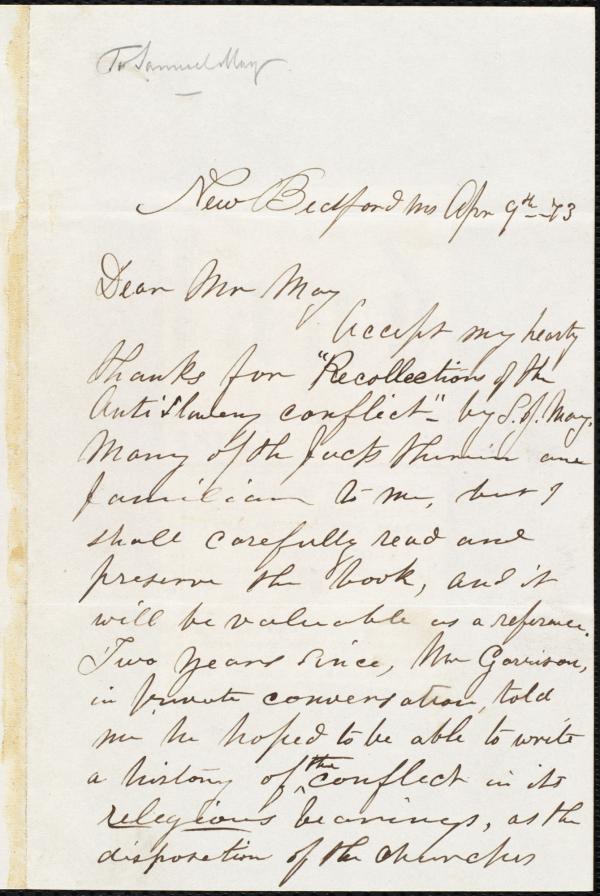 To Samuel May
New Bedford Ms Apr 9th -73
Dear Mr May
Accept my hearty
thanks for "Recollections of the
Anti Slavery conflict" - by S. J. May.
Many of the facts therein are
familiar to me, but I
shall carefully read and
preserve the book, and it
will be valuable as a reference.
Two years since, Mr Garrison,
in private conversation, told
me he hoped to be able to write
a history of the conflict in its
relegious bearings, as the
disposetion of the churches